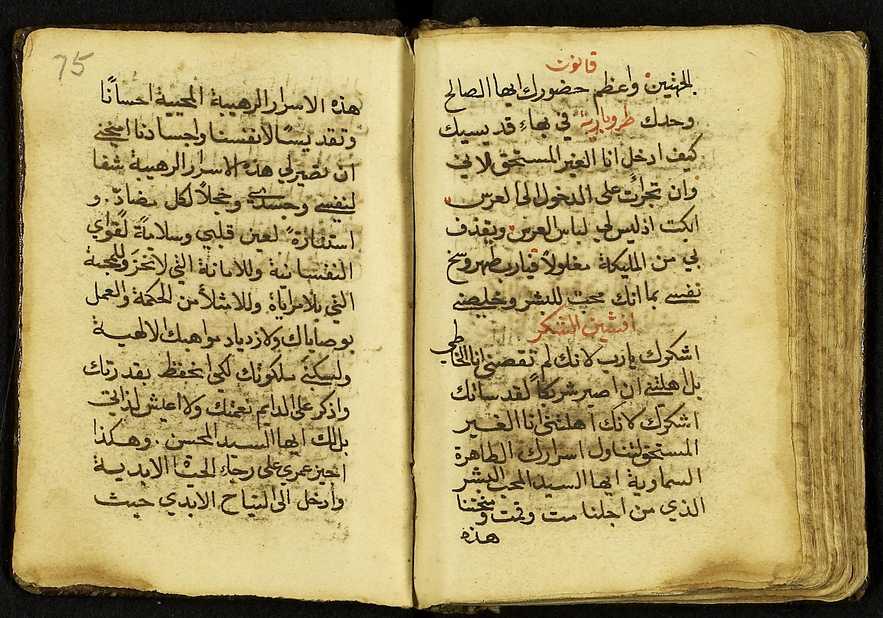 قانون
واعظم حضورك ايها الصالح
وحدك طروبارية في بهاء قديسيك
كيف ادخل انا الغير المستحق لاني
وان تجرات على الدخول الى العرس
ابكت اذ ليس لي لباس العرس ويقذف
بي من المليكة مغلولاً فيارب طهر وسخ
نفسي بما انك محب للبشر وخلصني
افشين التشكر
اشكرك يارب لانك لم تقصني انا الخاطي
بل اهلتني ان اصير شريكاً لقدساتك
اشكرك لانك اهلتني انا الغير
المستحق لتناول اسرارك الطاهرة
السماوية ايها السيد المحب البشر
الذي من اجلنا مت وقمت ومنحتنا
هذه
75
هذه الاسرار الرهيبة المحيية احسانًا
وتقديسًا لانفسنا واجسادنا امنحني
ان تصير لي هذه الاسرار الرهيبة شفا
لنفسي وجسدي وخجلاً لكل مضادّ. و
استنارةً لعين قلبي وسلامةً لقواي
النفسانية وللامانة التي لا تخزَ وللمحبة
التي بلا مراياة وللامتلأ من الحكمة والعمل
بوصاياك ولازدياد مواهبك الالهية
ولسكنى ملكوتك لكي اتحفظ بقدرتك
واذكر على الدايم نعمتك ولا اعيش لذاتي
بل لك ايها السيد المحسن. وهكذا
اجيز عمري على رجاء الحياة الابدية
وادخل الى النياح الابدي حيث